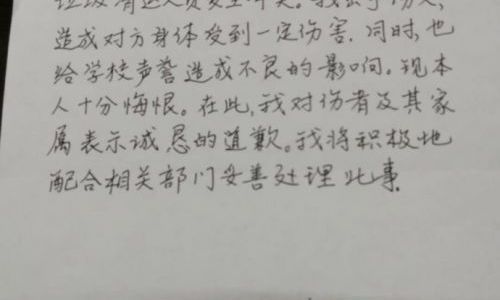 垃圾清运人员发生冲突。我出手伤人,
造成对方身体受到一定伤害.同时,也
给学校声誉造成不良的影响。现本
人十分悔恨。在此,我对伤者及其家
属表示诚恳的道歉。我将积极地
配合相关部门妥善处理此事.